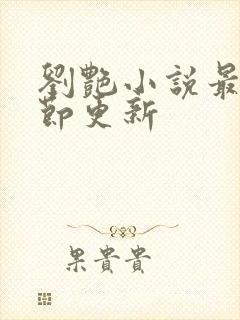 劉艷小說最
節更新
果貴貴